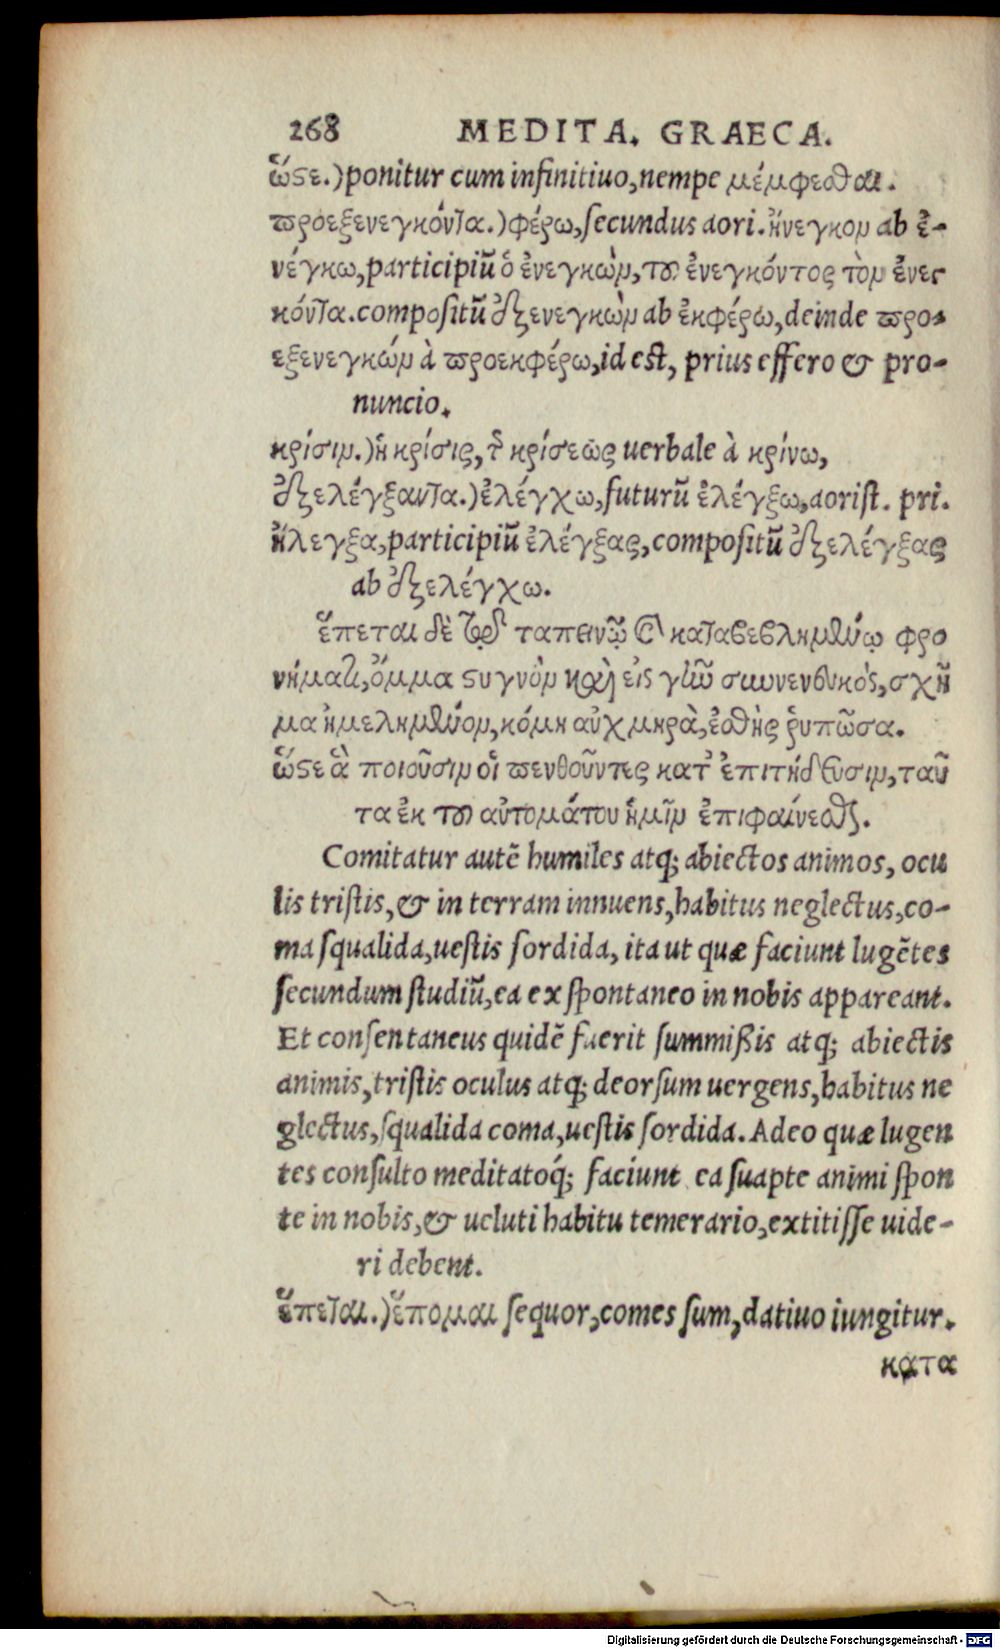 268 MEDITA. GRAECA.
ὥστε.) ponitur cum infinitiuo, nempe μέμφεσθαι.
προεξενεγκόντα.) φέρω, secundus aori. ἤνεγκον ab ἐ-
νέγκω, participiũ ὁ ἐνεγκὼν, του ἐνεγκόντος τὸν ἐνεγ
κόντα. compositũ ἐξενεγκὼν ab ἐκφέρω, deinde προ-
εξενεγκών à προεκφέρω, id est, prius effero & pro-
nuncio.
κρίσιν.) ἡ κρίσις, τῆς κρίσεως uerbale à κρίνω,
ἐξελέγξαντα.) ἐλέγχω, futurũ ἐλέγξω, aorist. pri.
ἤλεγξα, participiũ ἐλέγξας, compositũ ἐξελέγξας
ab ἐξελέγχω.
ἕπεται δὲ τῷ ταπεινῷ καὶ καταβεβλημένῳ φρο
νήματι, ὄμμα στυγνὸν καὶ εἰς γῆν συννενευκός, σχῆ
μα ἠμελημένον, κόμη αὐχμηρὰ, ἐσθὴς ῥυπῶσα.
ὥστε ἃ ποιοῦσιν οἱ πενθοῦντες κατ' ἐπιτήδευσιν, ταῦ
τα ἐκ του αὐτομάτου ἡμῖν ἐπιφαίνεσθαι.
Comitatur autẽ humiles atq; abiectos animos, ocu
lis tristis, & in terram innuens, habitus neglectus, co-
ma squalida, uestis sordida, ita ut quæ faciunt lugẽtes
secundum studiũ, ea ex spontaneo in nobis appareant.
Et consentaneus quidẽ fuerit summißis atq; abiectis
animis, tristis oculus atq; deorsum uergens, habitus ne
glectus, squalida coma, uestis sordida. Adeo quæ lugen
tes consulto meditatoq́; faciunt ea suapte animi spon
te in nobis, & ueluti habitu temerario, extitisse uide-
ri debent.
ἕπεται.) ἕπομαι sequor, comes sum, datiuo iungitur.
κατα
Digitalisierung gefördert durch die Deutsche Forschungsgemeinschaft - DFG